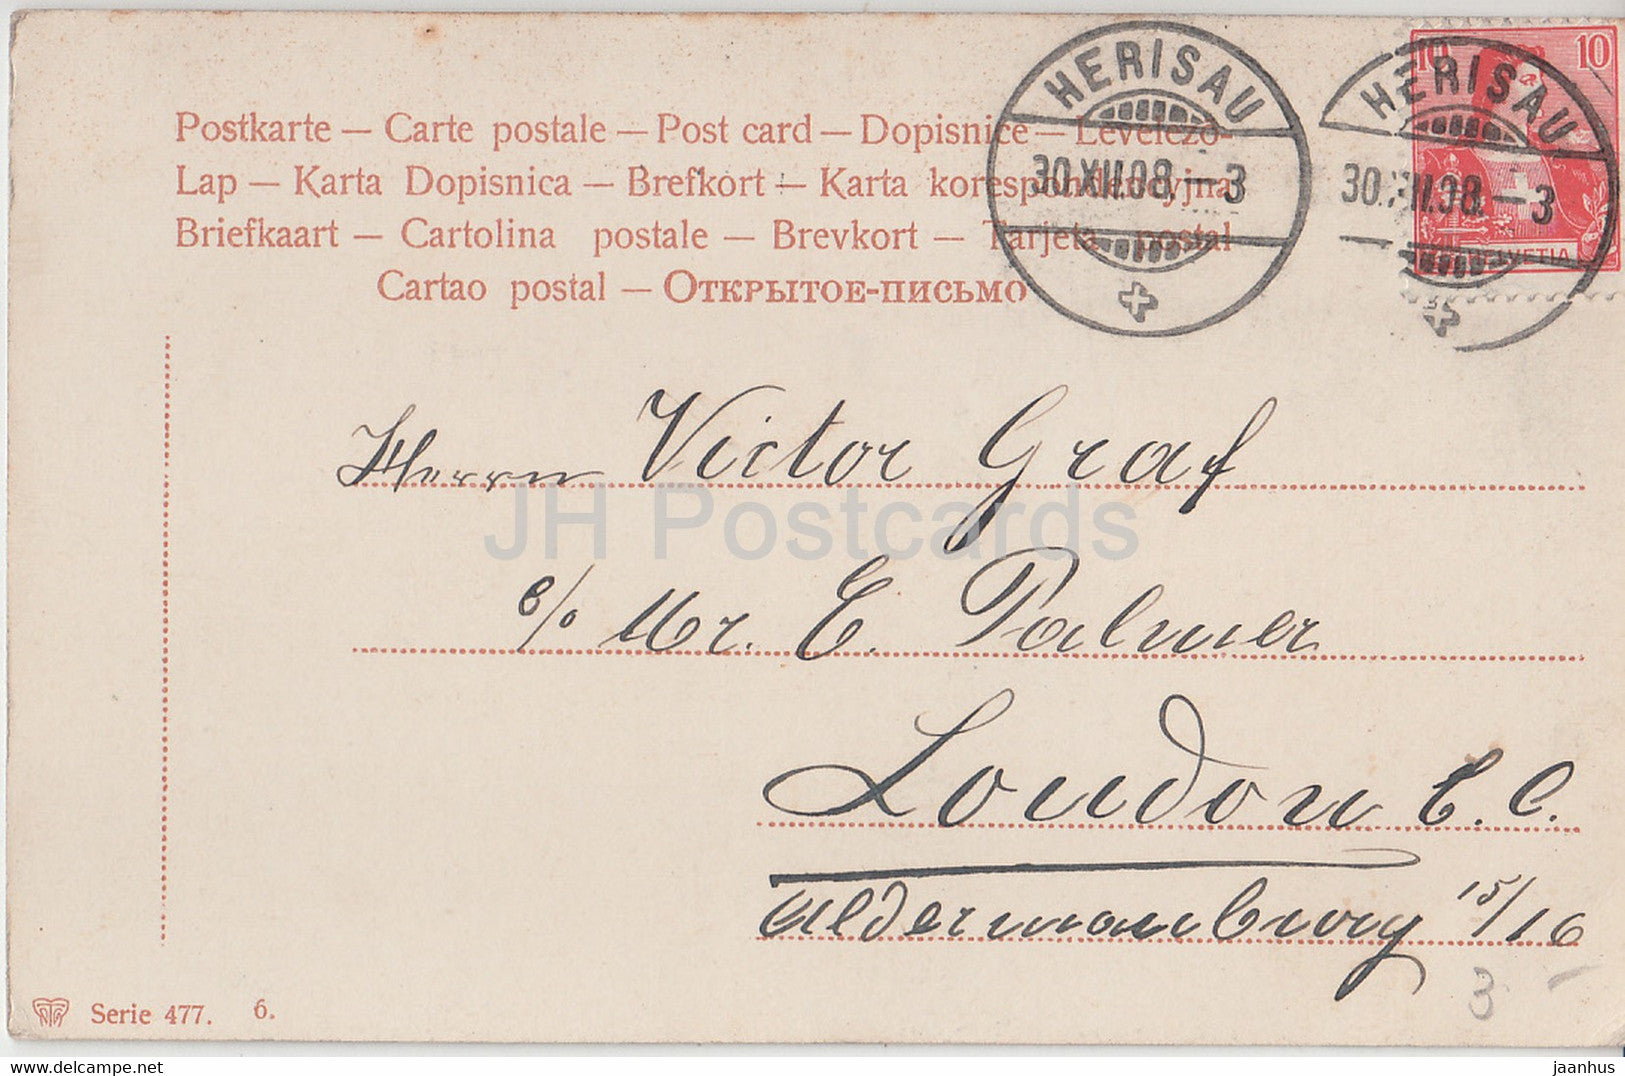 Postkarte — Carte postale — Post card — Dopisnice — Levelezo-
Lap — Karta Dopisnica — Brefkort — Karta korespondencyjna
Briefkaart — Cartolina postale — Brevkort — Tarjeta postal
Cartao postal — Открытое-письмо
HERISAU
30.XII.08.–3
HERISAU
30.XII.08.–3
10 10
HELVETIA
Herrn Victor Graf
c/o Mr. E. Palmer
London E. C.
Aldermanbury 15/16
3 –
Serie 477. 6.
JH Postcards
delcampe.net
jaanhus